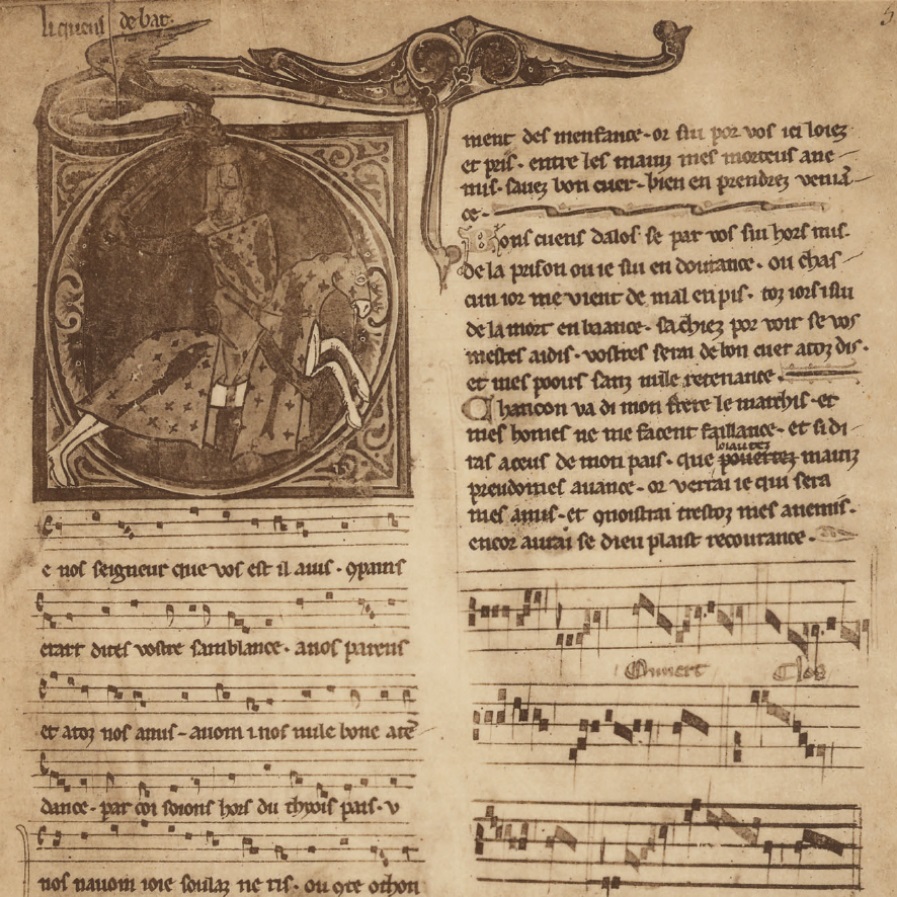 li quens de bar.
e nos seigneur que vos est il auis. 9pains
erart dites vostre samblance. anos parens
et atoz nos amis. auom i. nos nule bone ate
dance. par coi soions hors du thyois pais. v
nos nauom ioie soulaz ne ris. ou 9te othon
ment des menfance. or sui por vos ici loiez
et pris. entre les mainz mes morteus ane
mis. sauez bon cuer. bien en prendrez venia
ce.
Bons cuens dalos. se par vos sui hors mis.
de la prison ou ie sui en doutance. ou chas
cun ior me vient de mal en pis. toz iors i sui
de la mort en baance. sachiez por voir se vos
mestes aidis. vostres serai de bon cuer atoz dis.
et mes pooirs sanz nule retenance.
Chancon va di mon frere le marchis. et
mes homes ne me facent faillance. et si di
ras aceus de mon pais. que loiautez mainz
preudomes auance. or verrai ie qui sera
mes amis. et quoistrai trestoz mes anemis.
encor aurai se dieu plaist recourance.
Ouuert Clos